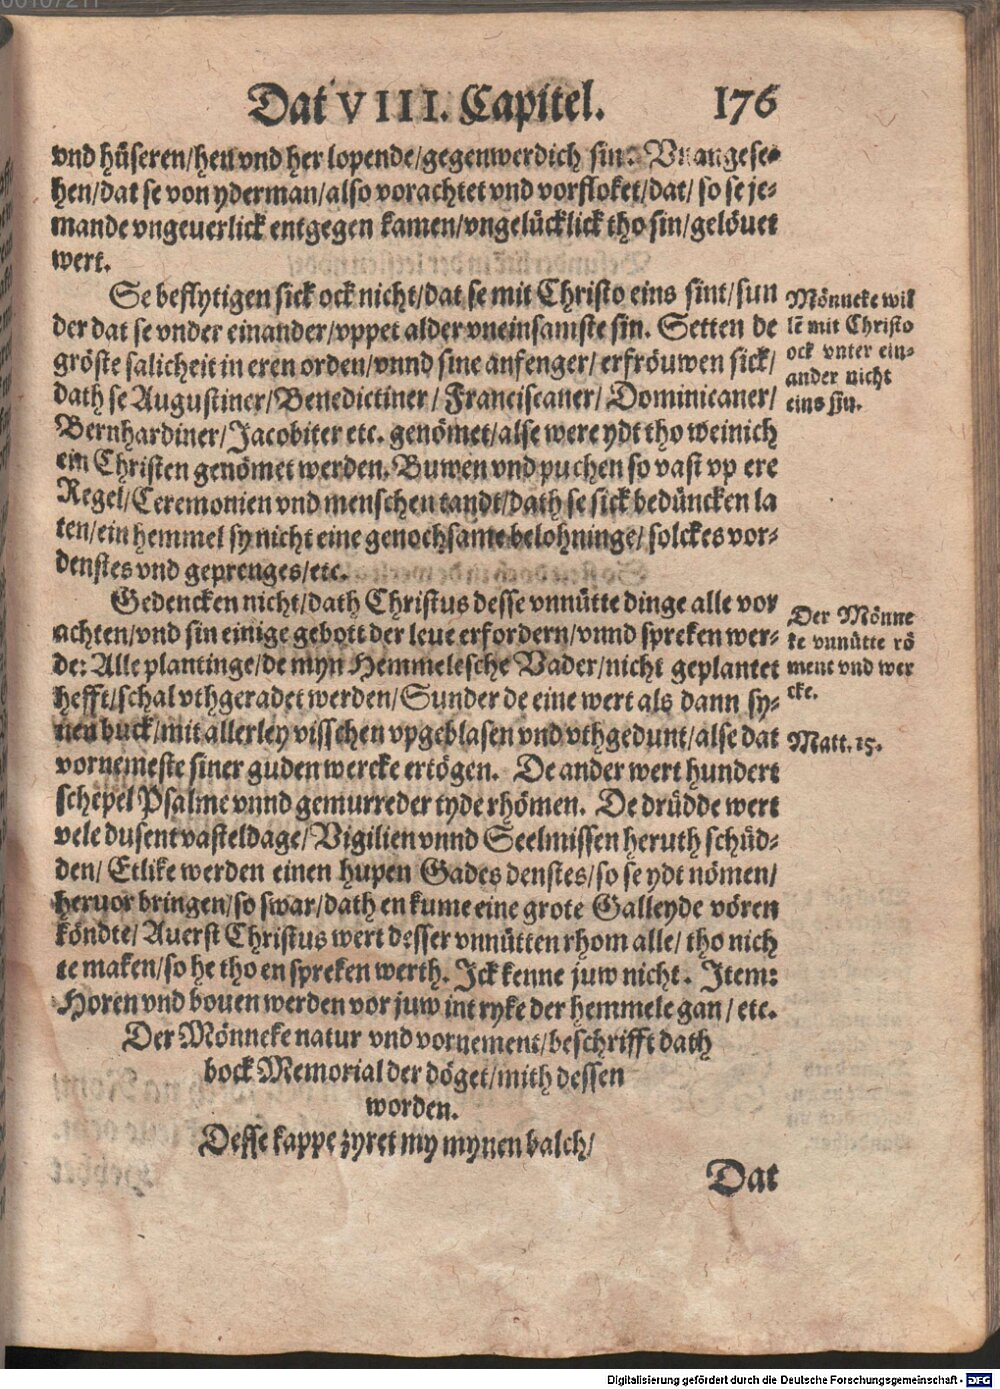 Dat VIII. Capitel. 176
vnd hüseren/hen vnd her lopende/gegenwerdich sin: Vnangese-
hen/dat se von yderman/also vorachtet vnd vorfloket/dat/so se je-
mande vngeuerlick entgegen kamen/vngelücklick tho sin/gelöuet
wert.
Se beflytigen sick ock nicht/dat se mit Christo eins sint/sun
der dat se vnder einander/vppet alder vneinsamste sin. Setten de
gröste salicheit in eren orden/vnnd sine anfenger/erfröuwen sick/
dath se Augustiner/Benedictiner/Franciscaner/Dominicaner/
Bernhardiner/Jacobiter etc. genömet/alse were ydt tho weinich
ein Christen genömet werden. Buwen vnd puchen so vast vp ere
Regel/Ceremonien vnd menschen tandt/dath se sick bedüncken la
ten/ein hemmel sy nicht eine genochsame belohninge/solckes vor-
denstes vnd geprenges/etc.
Mönneke wil
lē mit Christo
ock vnter ein-
ander nicht
eins sin.
Gedencken nicht/dath Christus desse vnnütte dinge alle vor
achten/vnd sin einige gebott der leue erfordern/vnnd spreken wer-
de: Alle plantinge/de myn Hemmelesche Vader/nicht geplantet
hefft/schal vthgeradet werden/Sunder de eine wert als dann sy-
nen buck/mit allerley visschen vpgeblasen vnd vthgedunt/alse dat
vornemeste siner guden wercke ertögen. De ander wert hundert
schepel Psalme vnnd gemurreder tyde rhömen. De drüdde wert
vele dusent vasteldage/Vigilien vnnd Seelmissen heruth schüd-
den/Etlike werden einen hupen Gades denstes/so se ydt nömen/
heruor bringen/so swar/dath en kume eine grote Galleyde vören
köndte/Auerst Christus wert desser vnnütten rhom alle/tho nich
te maken/so he tho en spreken werth. Ick kenne juw nicht. Item:
Horen vnd bouen werden vor juw int ryke der hemmele gan/etc.
Der Mönne
ke vnnütte rö
ment vnd wer
cke.
Matt. 15.
Der Mönneke natur vnd vornement/beschrifft dath
bock Memorial der döget/mith dessen
worden.
Desse kappe zyret my mynen balch/
Dat
Digitalisierung gefördert durch die Deutsche Forschungsgemeinschaft - DFG